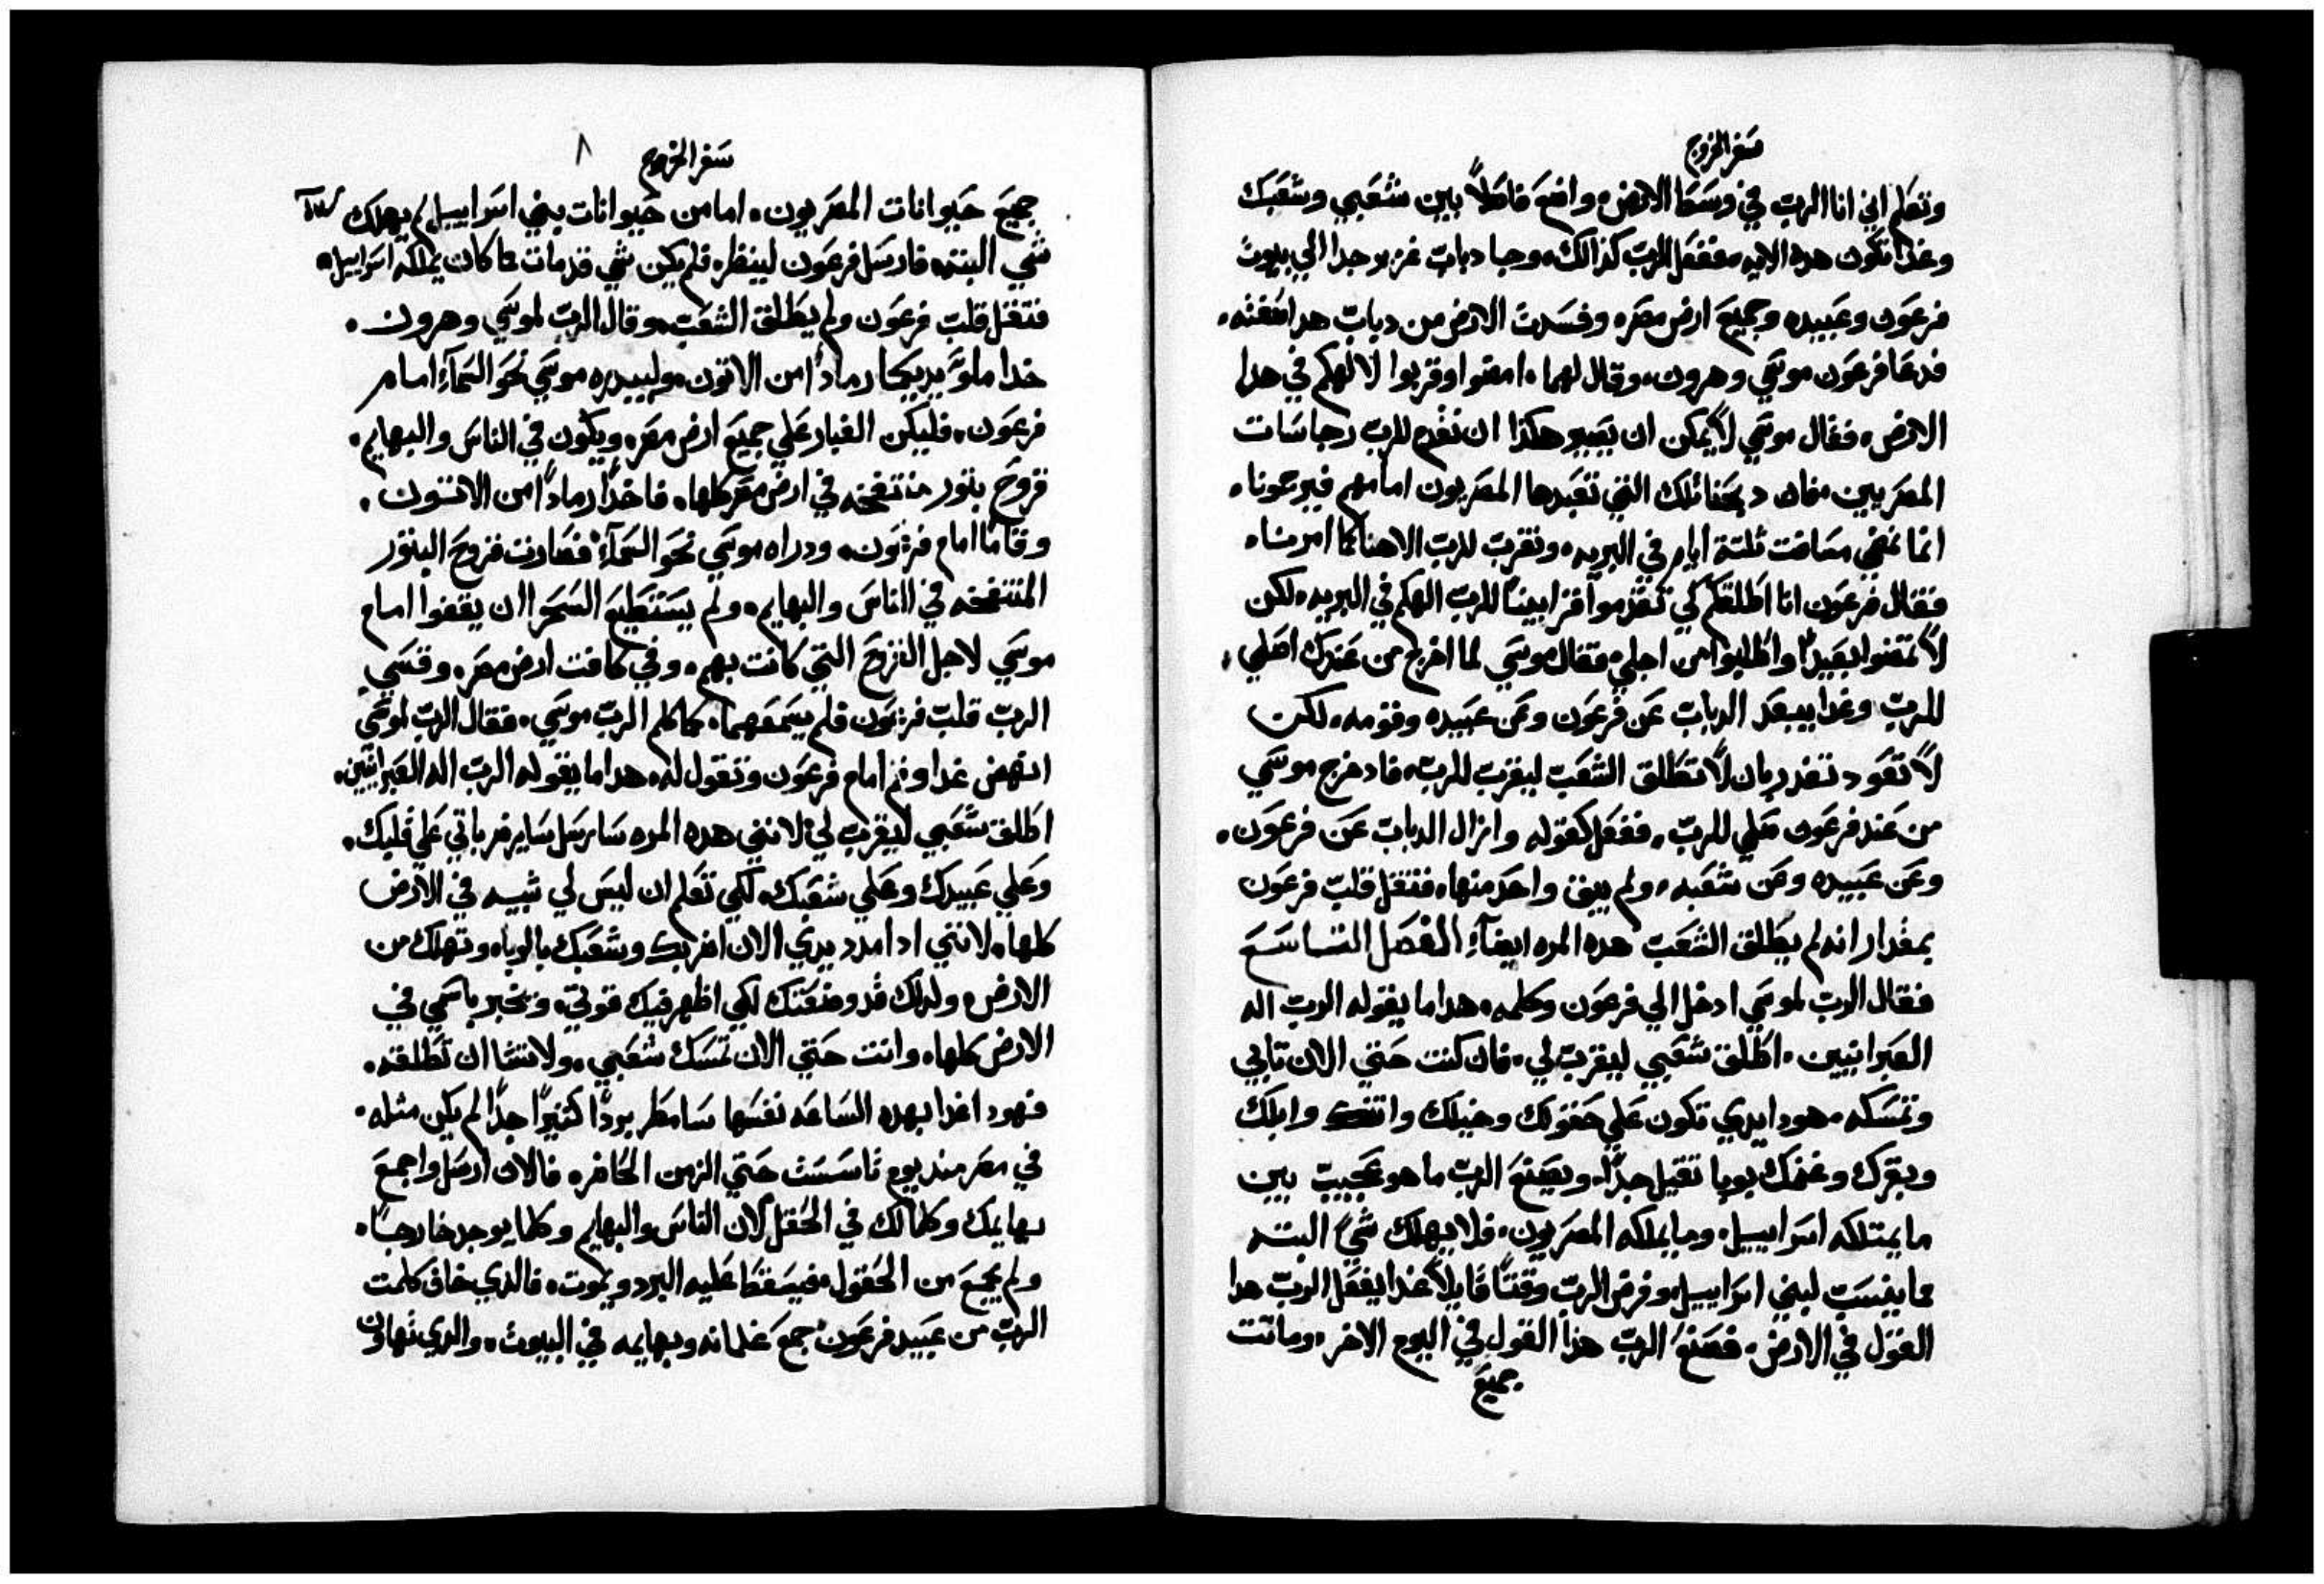 سفر الخروج
وتعلم اني انا الرب في وسط الارض. واضع فاصلاً بين شعبي وشعبك
وغداً تكون هده الايه. ففعل الرب كذالك. وجا دباب غزير جدا الي بيوت
فرعون وعبيده وجميع ارض مصر. وفسدت الارض من دباب هدا صفته.
فدعا فرعون موسي وهرون. وقال لهما. امضوا وقربوا لالهكم في هدا
الارض. فقال موسي لا يمكن ان يصير هكذا ان نقدم للرب رجاسات
المصريين. فان دبحنا تلك التي تعبدها المصريون امامهم فيرجمونا.
انما نمضي مسافت تلتة ايام في البريه. ونقرب للرب الاهنا كما امرنا.
فقال فرعون انا اطلقكم لكي تقدموا قرابيناً للرب الهكم في البريه. لكن
لا تمضوا بعيداً واطلبوا من اجلي. فقال موسي لما اخرج من عندك اصلي.
للرب وغدا يبعد الدباب عن فرعون وعن عبيده وقومه. لكن
لا تعود تغدر بان لا تطلق الشعب ليقرب للرب. فاد خرج موسي
من عند فرعون صلي للرب. ففعل كقوله وازال الدباب عن فرعون.
وعن عبيده وعن شعبه. ولم يبق واحد منها. فتقل قلب فرعون
بمقدار انه لم يطلق الشعب هده المره ايضاً. الفصل التاسع
فقال الرب لموسي ادخل الي فرعون وكلمه. هدا ما يقوله الرب اله
العبرانيين. اطلق شعبي ليقرب لي. فان كنت حتي الان تابي
وتمسكه. هودا يدي تكون علي حقولك وخيلك واتنك وابلك
وبقرك وغنمك بوبا تقيل جداً. ويصنع الرب ما هو عجيب بين
ما يمتلكه اسراييل. وما يملكه المصريون. فلا يهلك شيً البته
مما ينسب لبني اسراييل. وفرض الرب وقتاً قايلاً غدا يفعل الرب هدا
القول في الارض. فصنع الرب هذا القول في اليوم الاخر. وماتت
جميع
سفر الخروج ٨
جميع حيوانات المصريون. اما من حيوانات بني اسراييل لم يهلك
شي البته. فارسل فرعون لينظر. فلم يكن شي قد مات مما كان يملكه اسراييل.
فتقل قلب فرعون ولم يطلق الشعب. وقال الرب لموسي وهرون.
خدا ملو يديكما رماداً من الاتون. وليبدره موسي نحو السمآء امام
فرعون. فليكن الغبار علي جميع ارض مصر. ويكون في الناس والبهايم.
قروح بتور منتفخه في ارض مصر كلها. فاخدا رماداً من الاتون.
وقاما امام فرعون. ودراه موسي نحو السمآء. فصارت قروح البتور
المنتفخه في الناس والبهايم. ولم يستطيع السحرا ان يقفوا امام
موسي لاجل القروح التي كانت بهم. وفي كافت ارض مصر. وقسي
الرب قلب فرعون فلم يسمعهما. كما كلم الرب موسي. فقال الرب لموسي
انهض غدا وقم امام فرعون وتقول له. هدا ما يقوله الرب اله العبرانيين.
اطلق شعبي ليقرب لي. لانني هده المره سارسل ساير ضرباتي علي قلبك.
وعلي عبيدك وعلي شعبك. لكي تعلم ان ليس لي شبيه في الارض
كلها. لانني اد امدد يدي الان اضربك وشعبك بالوبا. وتهلك من
الارض. ولدلك قد وضعتك لكي اظهر فيك قوتي. ويخبر باسمي في
الارض كلها. وانت حتي الان تمسك شعبي. ولا تشا ان تطلقه.
فهودا غدا بهده الساعه نفسها سامطر برداً كتيراً جداً لم يكن مثله.
في مصر مند يوم تاسست حتي الزمن الحاضر. فالان ارسل واجمع
بهايمك وكلما لك في الحقل. لان الناس والبهايم وكلما يوجد خارجاً.
ولم يجمع من الحقول. فيسقط عليه البرد ويموت. فالدي خاف كلمت
الرب من عبيد فرعون جمع غلمانه وبهايمه في البيوت. والدي تهاون